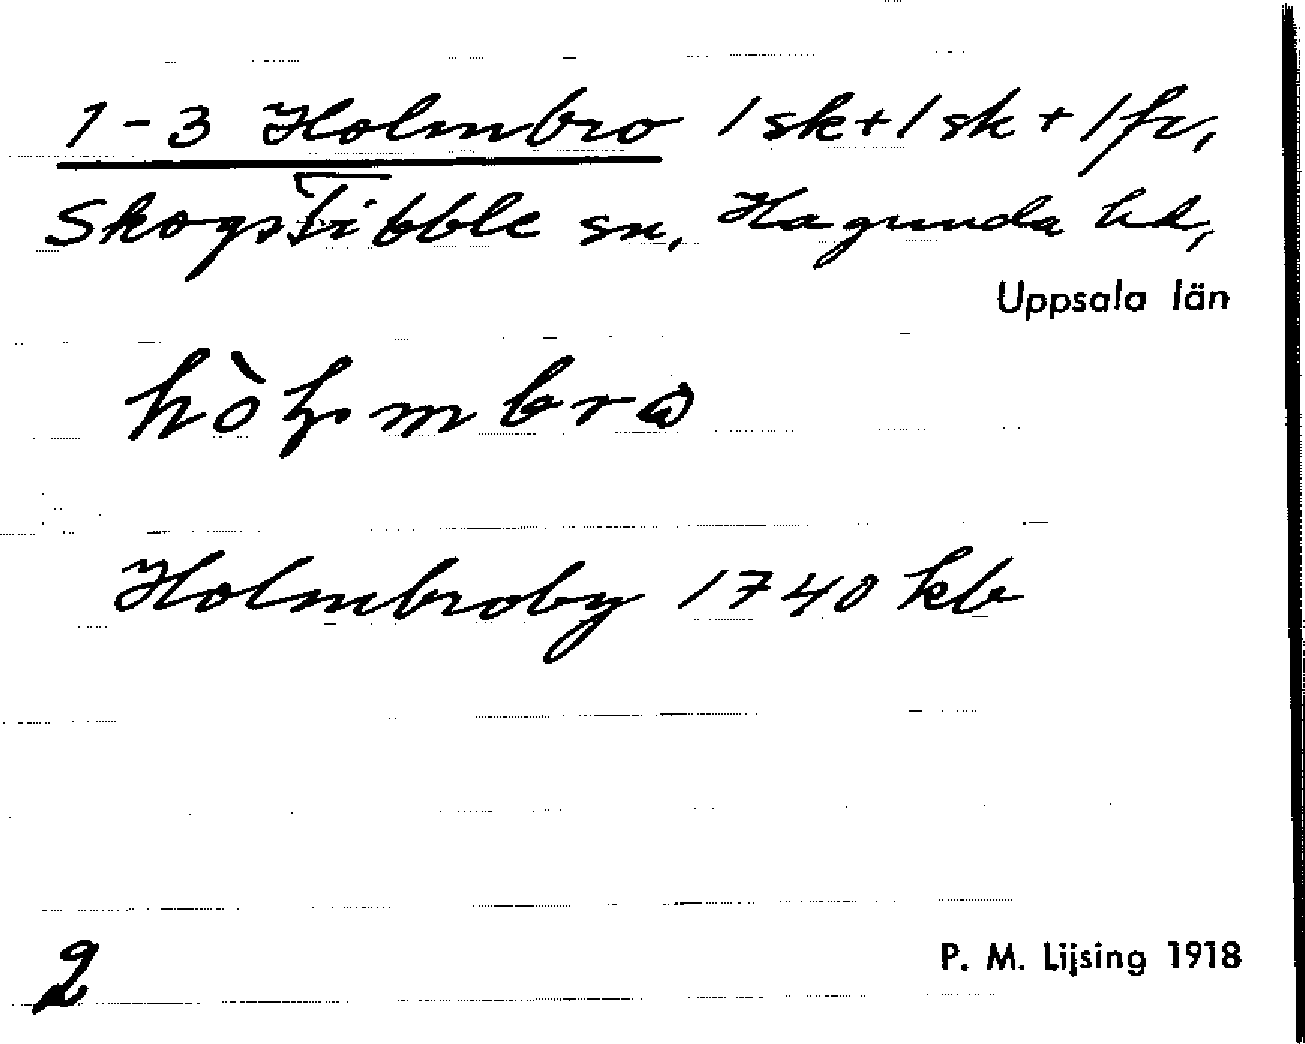 1-3 Holmbro 1 sk + 1 sk + 1 fr,
SkogsTibble sn, Hagunda hd,
Uppsala län
Holmbroby 1740 kb
2
P. M. Lijsing 1918